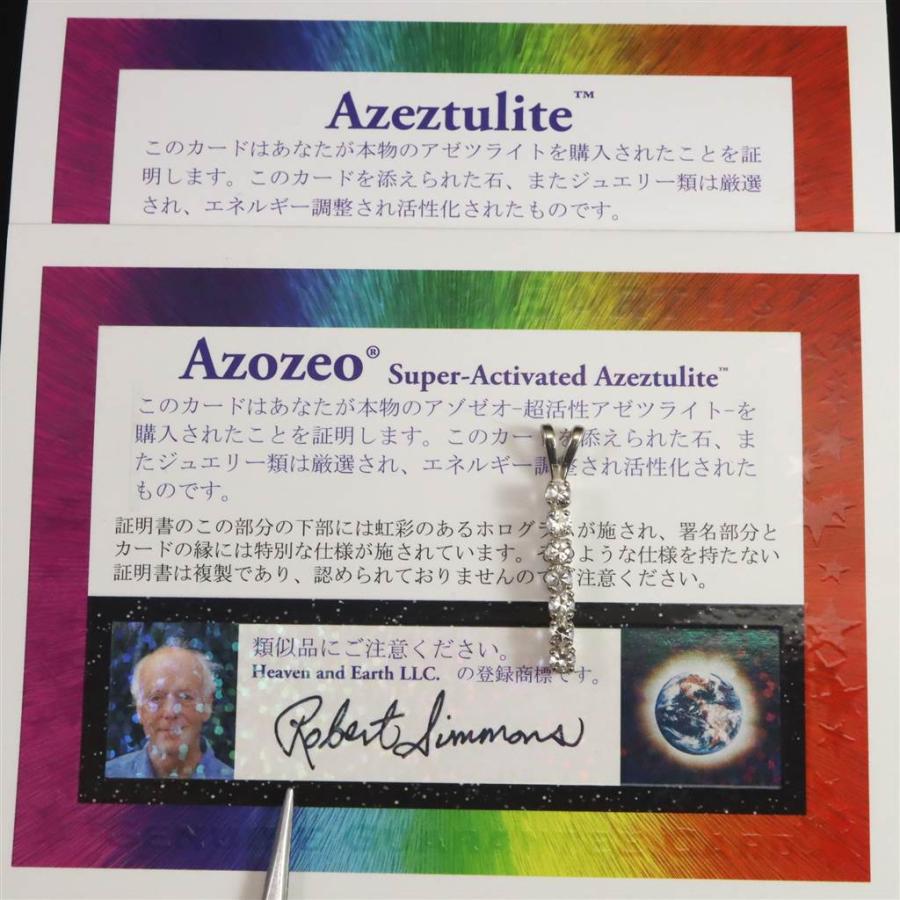 Azeztulite™
このカードはあなたが本物のアゼツライトを購入されたことを証
明します。このカードを添えられた石、またジュエリー類は厳選
され、エネルギー調整され活性化されたものです。
Azozeo® Super-Activated Azeztulite™
このカードはあなたが本物のアゾゼオ-超活性アゼツライト-を
購入されたことを証明します。このカー を添えられた石、ま
たジュエリー類は厳選され、エネルギー調整され活性化された
ものです。
証明書のこの部分の下部には虹彩のあるホログラムが施され、署名部分と
カードの縁には特別な仕様が施されています。そ ような仕様を持たない
証明書は複製であり、認められておりませんので ご注意ください。
類似品にご注意ください。
Heaven and Earth LLC. の登録商標です。
Robert Simmons